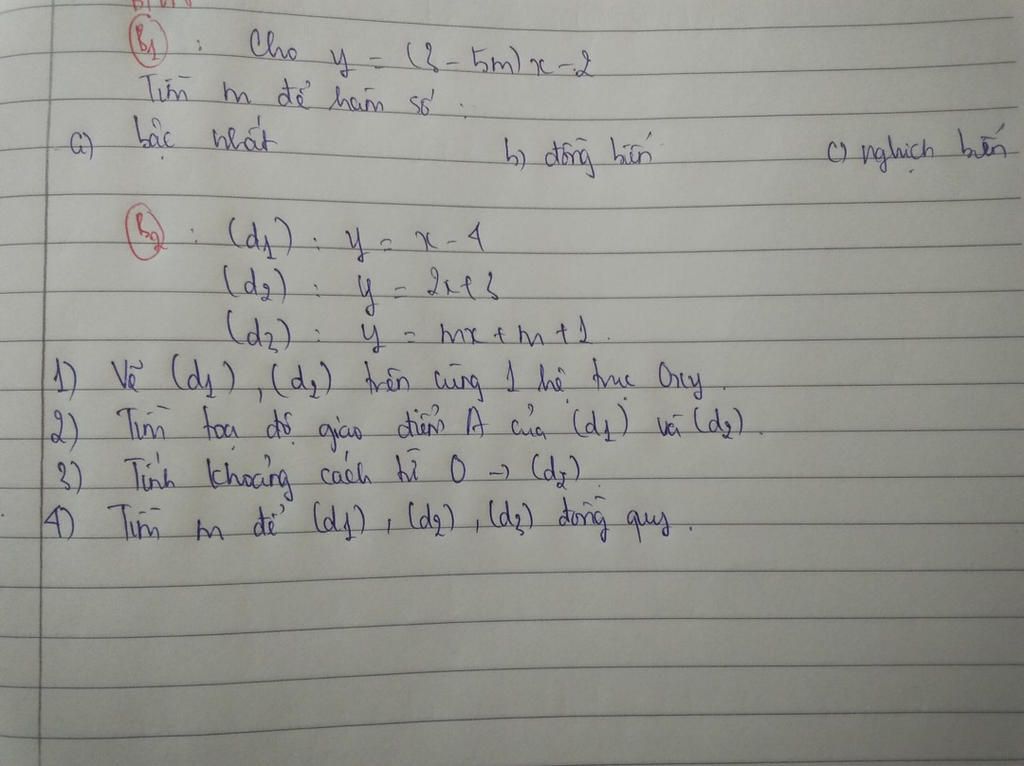 B1 : Cho y = (3 - 5m)x - 2
Tìm m để hàm số :
a) bậc nhất b) đồng biến c) nghịch biến
B2 : (d1) : y = x - 4
(d2) : y = 2x + 3
(d3) : y = mx + m + 1.
1) Vẽ (d1), (d2) trên cùng 1 hệ trục Oxy.
2) Tìm toạ độ giao điểm A của (d1) và (d2).
3) Tính khoảng cách từ O → (d2).
4) Tìm m để (d1), (d2), (d3) đồng quy.